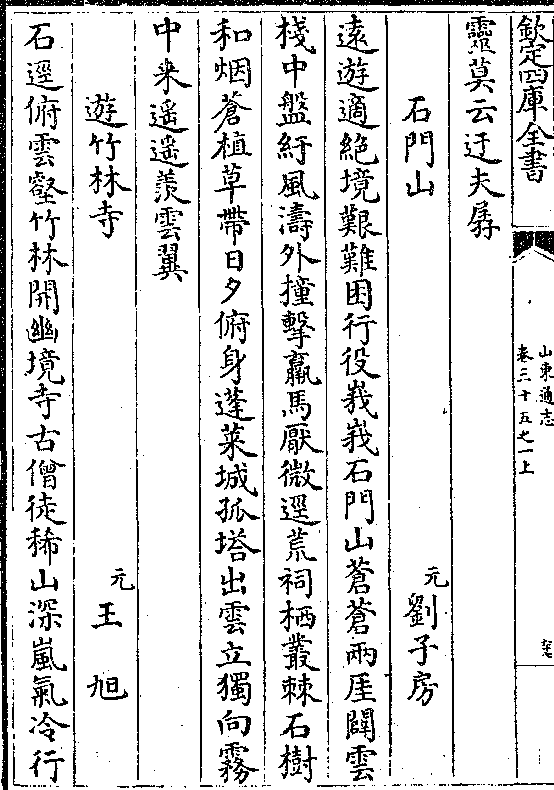 欽定四庫全書
山東通志
卷三十五之一上
靈莫云迂夫孱
石門山 元 劉子房
遠遊適絕境艱難困行役峩峩石門山蒼蒼兩厓闢雲
棧中盤紆風濤外撞擊羸馬厭微逕荒祠栖叢棘石樹
和烟蒼植草帶日夕俯身蓬萊城孤塔出雲立獨向霧
中来遥遥羨雲翼
遊竹林寺 元 王旭
石逕俯雲壑竹林開幽境寺古僧徒稀山深嵐氣冷行